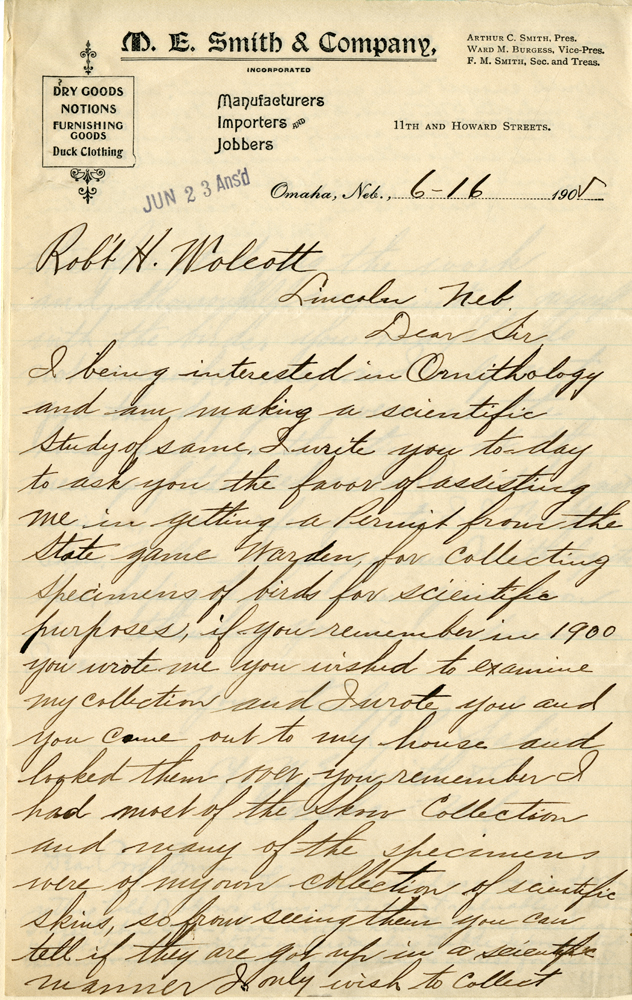 M. E. Smith & Company,
INCORPORATED
ARTHUR C. SMITH, Pres.
WARD M. BURGESS, Vice-Pres.
F. M. SMITH, Sec. and Treas.
DRY GOODS
NOTIONS
FURNISHING
GOODS
Duck Clothing
Manufacturers
Importers AND
Jobbers
11TH AND HOWARD STREETS.
JUN 23 Ans'd
Omaha, Neb., 6-16 1905
Robt H. Wolcott
Lincoln Neb
Dear Sir
I being interested in Ornithology
and am making a scientific
Study of same, I write you to-day
to ask you the favor of assisting
me in getting a Permit from the
State game Warden, for Collecting
specimens of birds for scientific
purposes, if you remember in 1900
you wrote me you wished to examine
my collection and I wrote you and
you came out to my house and
looked them over, you remember I
had most of the Skow Collection
and many of the specimens
were of my own collection of scientific
skins, so from seeing them you can
tell if they are got up in a scientific
manner I only wish to Collect